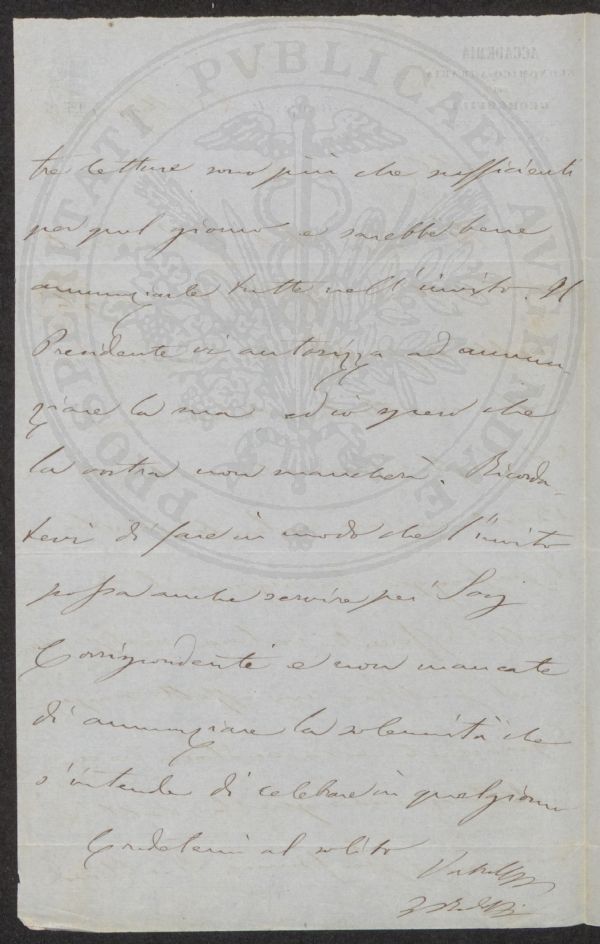 ACCADEMIA
ECONOMICO-AGRARIA
GEORGOFILI
PROSPERITATI PVBLICAE AVGENDAE
tre letture sono più che sufficienti
per quel giorno e sarebbe bene
annunziarle tutte nell'invito. Il
Presidente vi autorizza ad annun-
ziare la sua ed io spero che
la vostra non mancherà. Ricorda-
tevi di fare in modo che l'invito
possa anche servire pei Socj
Corrispondenti e non mancate
di annunziare la solennità che
s'intende di celebrare in quel giorno
Credetemi al solito